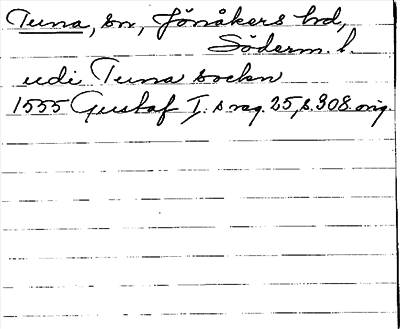 Tuna, sn, Jönåkers hd,
Söderm. l.
udi Tuna sockn
1555 Gustaf I:s reg. 25, s. 308. orig.